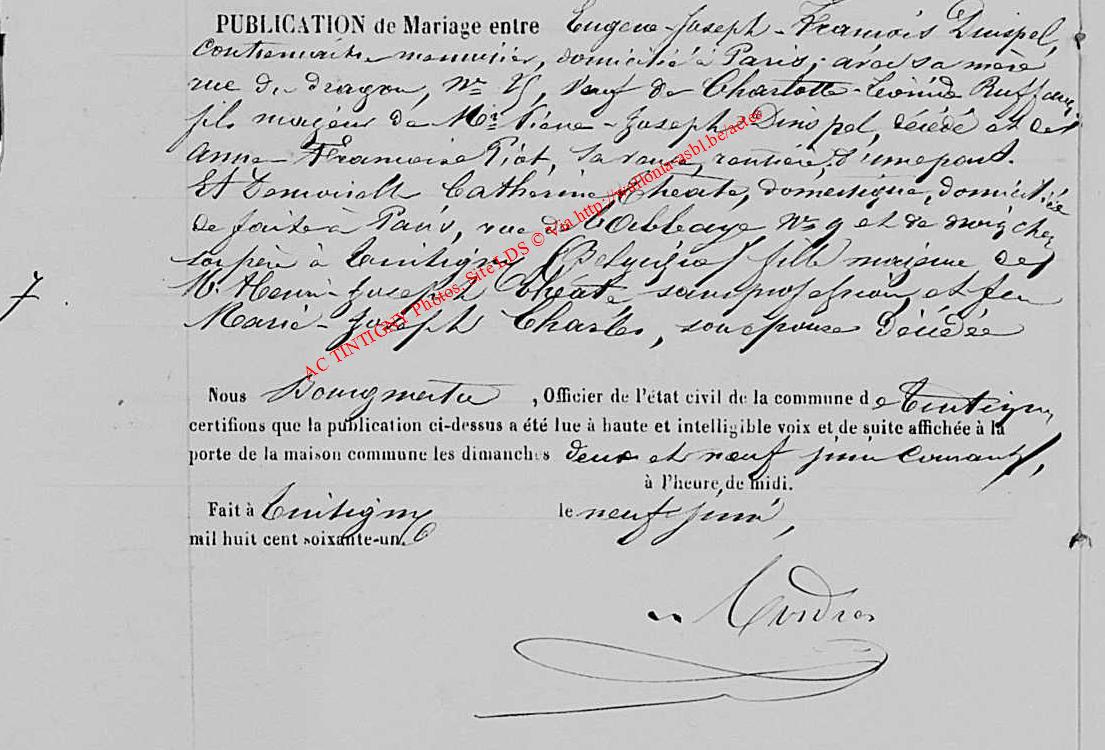 PUBLICATION de Mariage entre Eugene-Joseph-François Dinspel,
contremaitre menuisier, domicilié à Paris, avec sa mère
rue du dragon, Nº 15, Veuf de Charlotte-Léonide
fils majeur de Mr. Pierre-Joseph Dinspel, décédé et de
Anne Françoise Piot, sa veuve, rentière, d'une part.
Et Demoiselle Catherine Théate, domestique, domiciliée
de fait à Paris, rue de l'Abbaye Nº 9 et de droit chez
son père à Tintigny (Belgique) fille majeure de
7
M. Henri-Joseph Théate sans profession, et feu
Marie-Joseph Charles, son épouse décédée
AC TINTIGNY Photos, Site LDS © Via http://wallonia-asbl.be/actes
Nous Bourgmestre, Officier de l'état civil de la commune de Tintigny
certifions que la publication ci-dessus a été lue à haute et intelligible voix et de suite affichée à la
porte de la maison commune les dimanches deux et neuf juin courant,
à l'heure de midi.
Fait à Tintigny le neuf juin,
mil huit cent soixante-un.